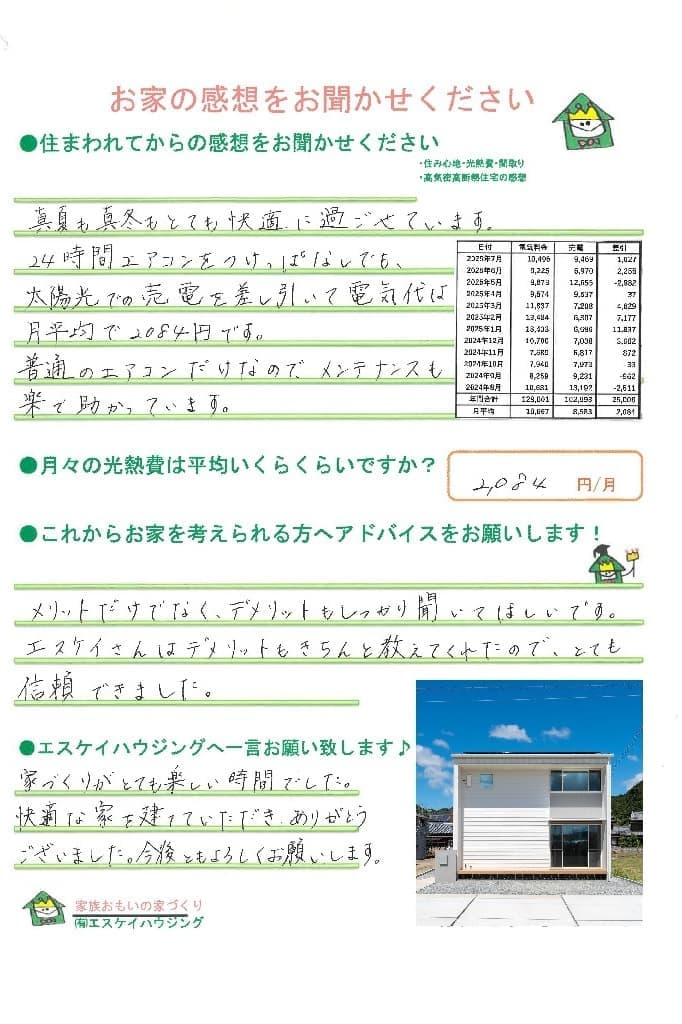 お家の感想をお聞かせください
●住まわれてからの感想をお聞かせください
・住み心地・光熱費・間取り
・高気密高断熱住宅の感想
真夏も真冬もとても快適に過ごせています。
24時間エアコンをつけっぱなしでも、
太陽光での売電を差し引いて電気代は
月平均で2084円です。
普通のエアコンだけなのでメンテナンスも
楽で助かっています。
日付 電気料金 売電 差引
2025年7月 10,496 9,469 1,027
2025年6月 9,225 6,970 2,255
2025年5月 9,673 12,655 -2,982
2025年4月 9,574 9,537 37
2025年3月 7,208 4,629
2025年2月 13,484 6,307 7,177
2025年1月 6,596 11,837
2024年12月 10,700 7,038 3,662
2024年11月 7,689 6,817 872
2024年10月 7,940 7,973 -33
2024年9月 8,259 9,221 -962
2024年8月 10,681 13,192 -2,511
年間合計 128,001 102,993 25,008
月平均 10,667 8,583 2,084
●月々の光熱費は平均いくらくらいですか？
2,084 円/月
●これからお家を考えられる方へアドバイスをお願いします！
メリットだけでなく、デメリットもしっかり聞いてほしいです。
エスケイさんはデメリットもきちんと教えてくれたので、とても
信頼できました。
●エスケイハウジングへ一言お願い致します♪
家づくりがとても楽しい時間でした。
快適な家を建てていただき、ありがとう
ございました。今後ともよろしくお願いします。
家族おもいの家づくり
㈲エスケイハウジング